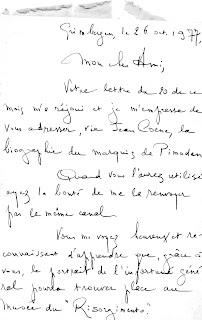 Grimbergen, le 26 oct. 1977,
Mon cher Ami,
Votre lettre du 20 de ce
mois m'a réjoui et je m'empresse de
vous adresser, via Jean Coene, la
biographie du marquis de Pimodan
Quand vous l'aurez utilisé
ayez la bonté de me la renvoyer
par le même canal.
Vous me voyez heureux et re-
connaissant d'apprendre que, grâce à
vous, le portrait de l'infortuné géné-
ral pourra trouver place au
Musée du "Risorgimento".